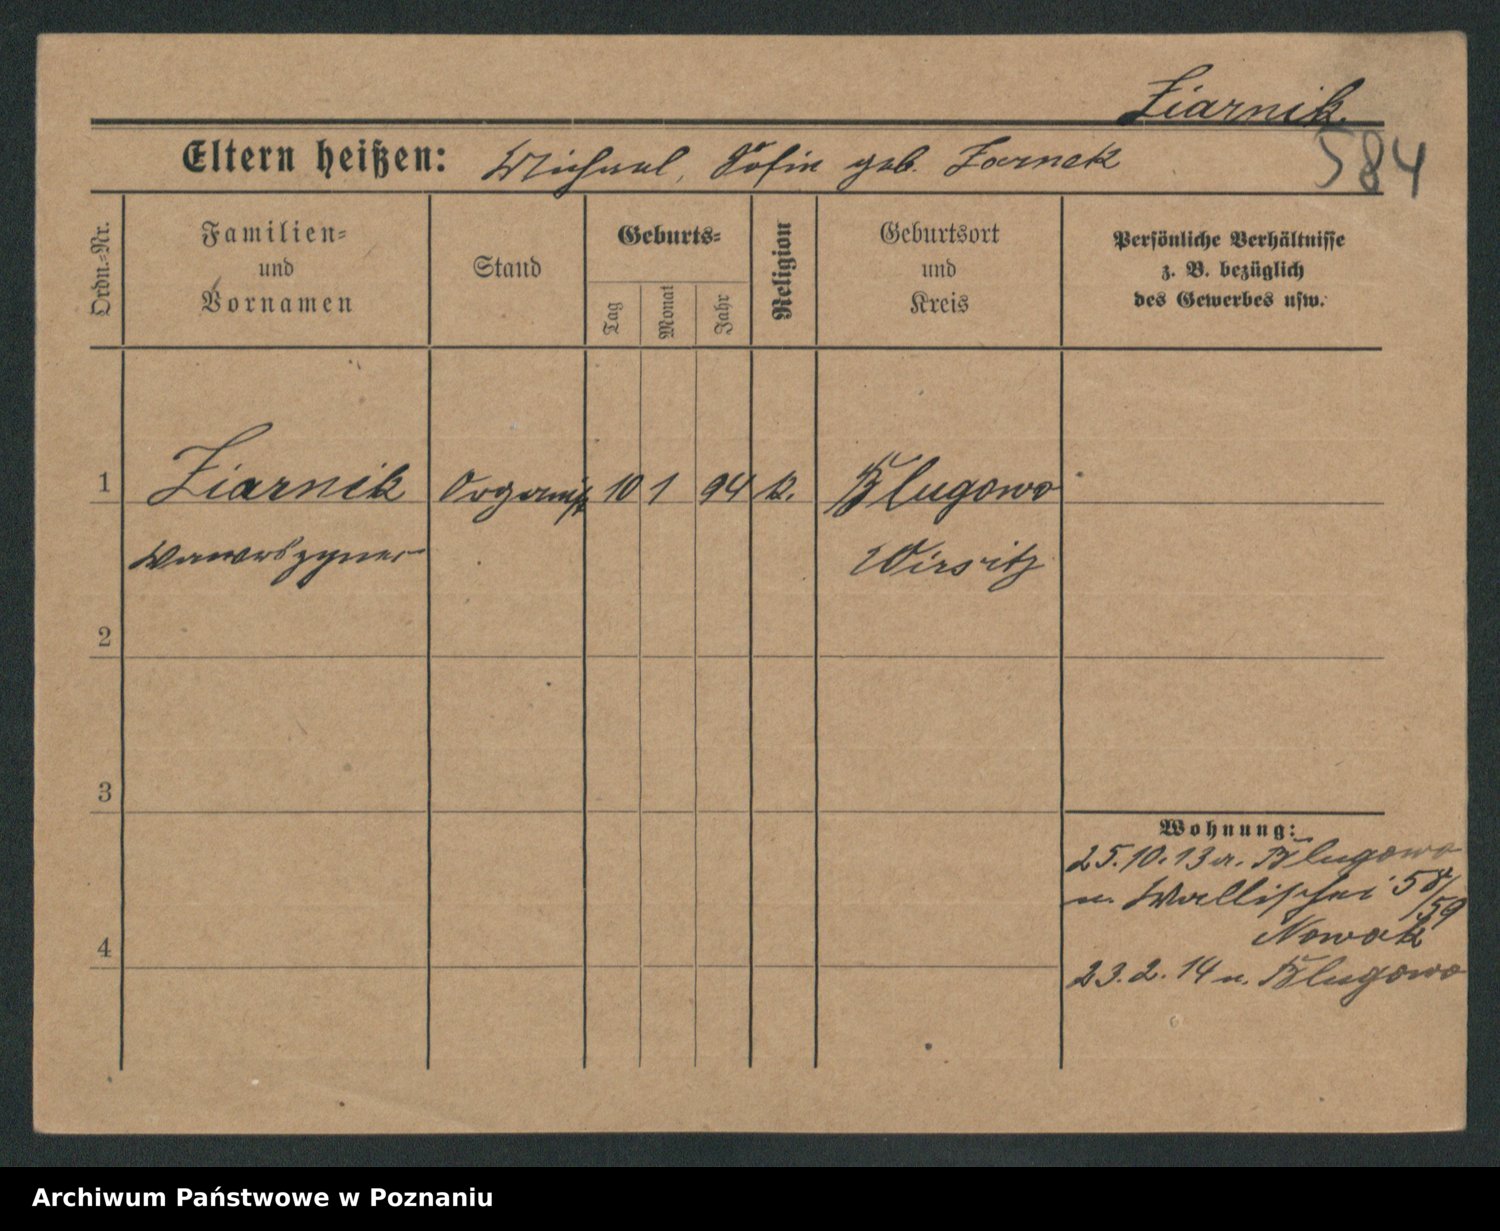 Ziarnik.
584
Eltern heißen: Michael, Sofie geb. Zarnek
Ordn.-Nr.
Familien-
und
Vornamen
Stand
Geburts-
Tag
Monat
Jahr
Religion
Geburtsort
und
Kreis
Persönliche Verhältnisse
z. B. bezüglich
des Gewerbes usw.
1 Ziarnik Organist 10 1 94 k. Blugowo
Wawrszyner Wirsitz
2
3
Wohnung:
25.10.13 a. Blugowo
n. Wallischei 58/59
4
Nowak
23.2.14 n. Blugowo
Archiwum Państwowe w Poznaniu